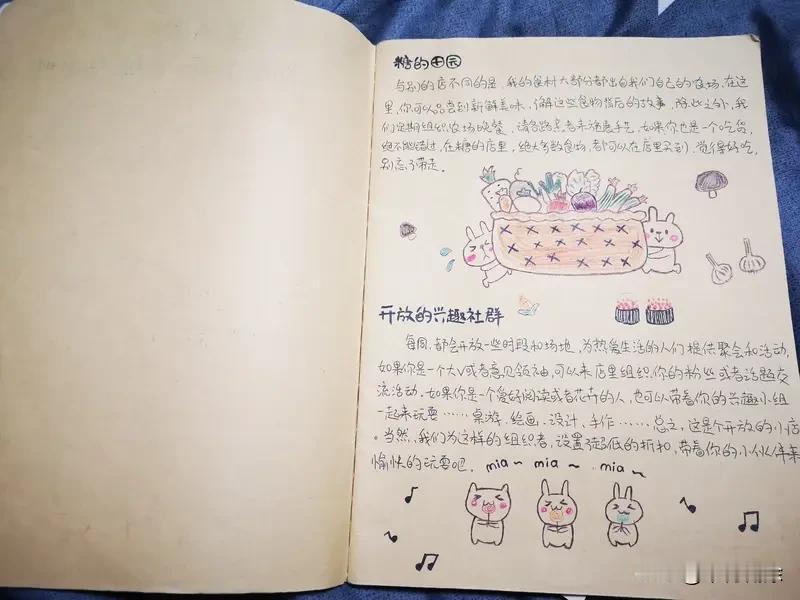 糖的田园
与别的店不同的是,我的食材大部分都出自我们自己的农场,在这
里,你可以品尝到新鲜美味,了解这些食物背后的故事,除此之外,我
们定期组织农场晚餐,请各路烹者来施展手艺,如果你也是一个吃货,
绝不能错过,在糖的店里,绝大多数食物,都可以在店里买到,觉得好吃,
别忘了带走。
开放的兴趣社群
每周,都会开放一些时段和场地,为热爱生活的人们提供聚会和活动,
如果你是一个大V或者意见领袖,可以来店里组织你的粉丝或者话题交
流活动.如果你是一个爱好阅读或者花卉的人,也可以带着你的兴趣小组
一起来玩耍……桌游、绘画、设计、手作……总之,这是个开放的小店
。当然,我们为这样的组织者,设置了超低的折扣,带着你的小伙伴来
愉快的玩耍吧.
mia~ mia~ mia~